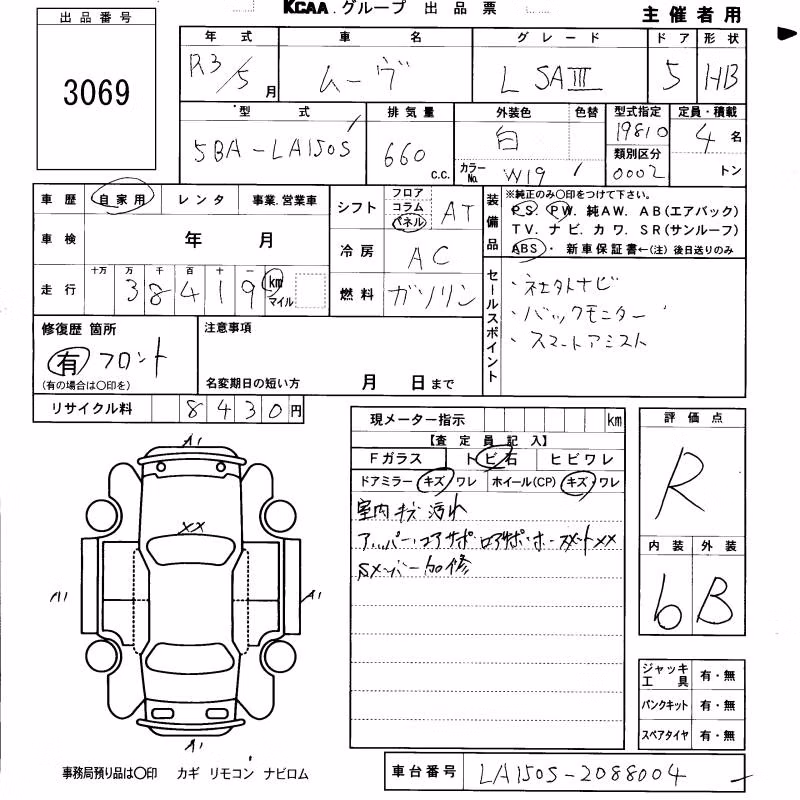 出品番号
3069
KCAA グループ 出品票
主催者用
年式 車名 グレード ドア 形状
R3/5月 ムーヴ L SAⅢ 5 HB
型式 排気量 外装色 色替 型式指定 定員・積載
5BA-LA150S 660 c.c. 白 19810 4名
カラーNo. W19 類別区分 0002 トン
車歴 自家用 レンタ 事業.営業車
車検 年 月
走行 十万 万 千 百 十 一
38419 km マイル
シフト フロア コラム パネル AT
冷房 AC
燃料 ガソリン
装備品
※純正のみ○印をつけて下さい。
PS. PW. 純AW. AB(エアバック)
TV. ナビ. カワ. SR(サンルーフ)
ABS・ 新車保証書←(注) 後日送りのみ
セールスポイント
・社外ナビ
・バックモニター
・スマートアシスト
修復歴 箇所
有 フロント
(有の場合は○印を)
注意事項
名変期日の短い方 月 日まで
リサイクル料 8430円
現メーター指示 km
【査定員記入】
Fガラス トビ石 ヒビワレ
ドアミラー キズ/ワレ ホイール(CP) キズ/ワレ
室内キズ 汚れ
アッパー・コアサポ・ロアサポ・ホースメントXX
Sメンバー加修
評価点
R
内装 外装
6 B
ジャッキ工具 有・無
パンクキット 有・無
スペアタイヤ 有・無
A1
XX
A1 A1
A1
事務局預り品は○印 カギ リモコン ナビロム
車台番号 LA150S-2088004